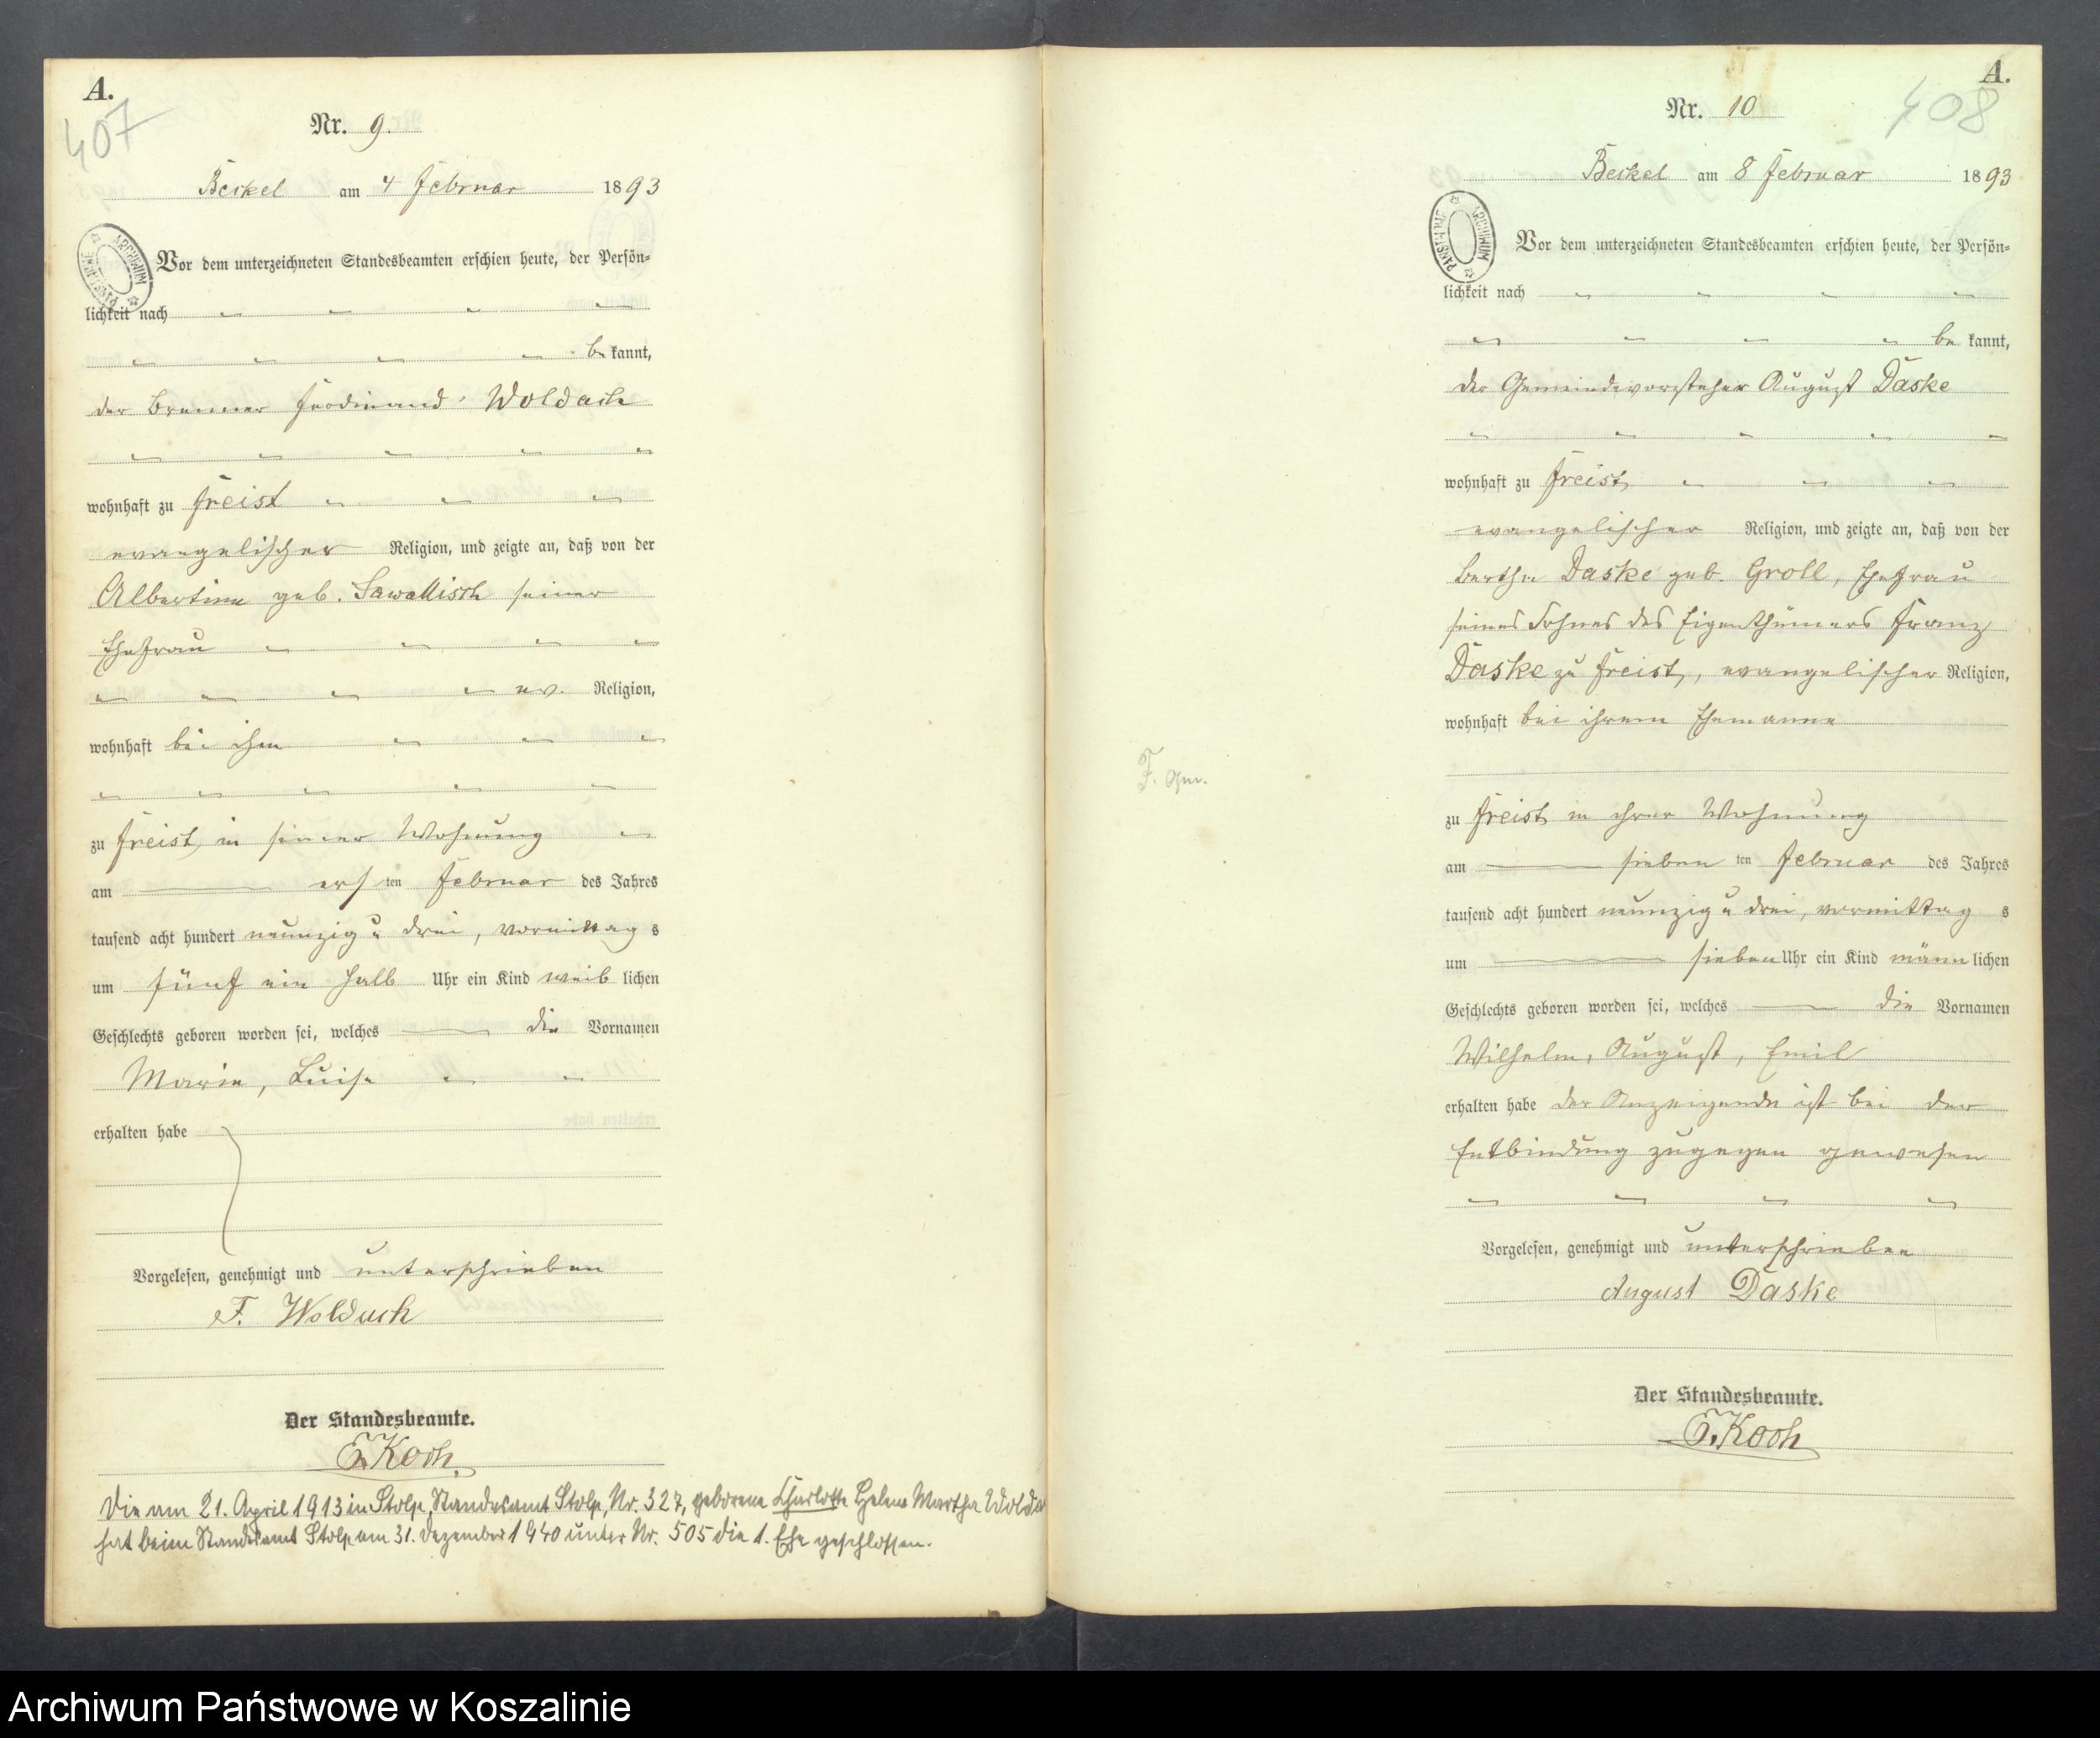 A.
407
Nr. 9.
Beckel am 4 Februar 1893
Vor dem unterzeichneten Standesbeamten erschien heute, der Persön-
lichkeit nach
be kannt,
der Brenner Ferdinand Woldach
wohnhaft zu Freist
evangelischer Religion, und zeigte an, daß von der
Albertine geb. Sawallisch seiner
Ehefrau
ev. Religion,
wohnhaft bei ihm
zu Freist, in seiner Wohnung
am ersten Februar des Jahres
tausend acht hundert neunzig u drei, vormittags
um fünf ein halb Uhr ein Kind weiblichen
Geschlechts geboren worden sei, welches die Vornamen
Marie, Luise
erhalten habe
Vorgelesen, genehmigt und unterschrieben
F. Woldach
Der Standesbeamte.
E. Koch.
Die am 21. April 1913 in Stolp, Standesamt Stolp, Nr. 327, geborene Charlotte Helene Martha
hat beim Standesamt Stolp am 31. Dezember 1940 unter Nr. 505 die 1. Ehe geschlossen.
PAŃSTWOWE ARCHIWUM
A.
408
Nr. 10
Beckel am 8 Februar 1893
Vor dem unterzeichneten Standesbeamten erschien heute, der Persön-
lichkeit nach
be kannt,
der Gemeindevorsteher August Daske
wohnhaft zu Freist
evangelischer Religion, und zeigte an, daß von der
Bertha Daske geb. Groll, Ehefrau
seines Sohnes des Eigenthümers Franz
Daske zu Freist, evangelischer Religion,
wohnhaft bei ihrem Ehemanne
zu Freist in ihrer Wohnung
am siebenten Februar des Jahres
tausend acht hundert neunzig u drei, vormittags
um sieben Uhr ein Kind männlichen
Geschlechts geboren worden sei, welches die Vornamen
Wilhelm, August, Emil
erhalten habe der Anzeigende ist bei der
Entbindung zugegen gewesen
Vorgelesen, genehmigt und unterschrieben
August Daske
Der Standesbeamte.
E. Koch
PAŃSTWOWE ARCHIWUM
Archiwum Państwowe w Koszalinie